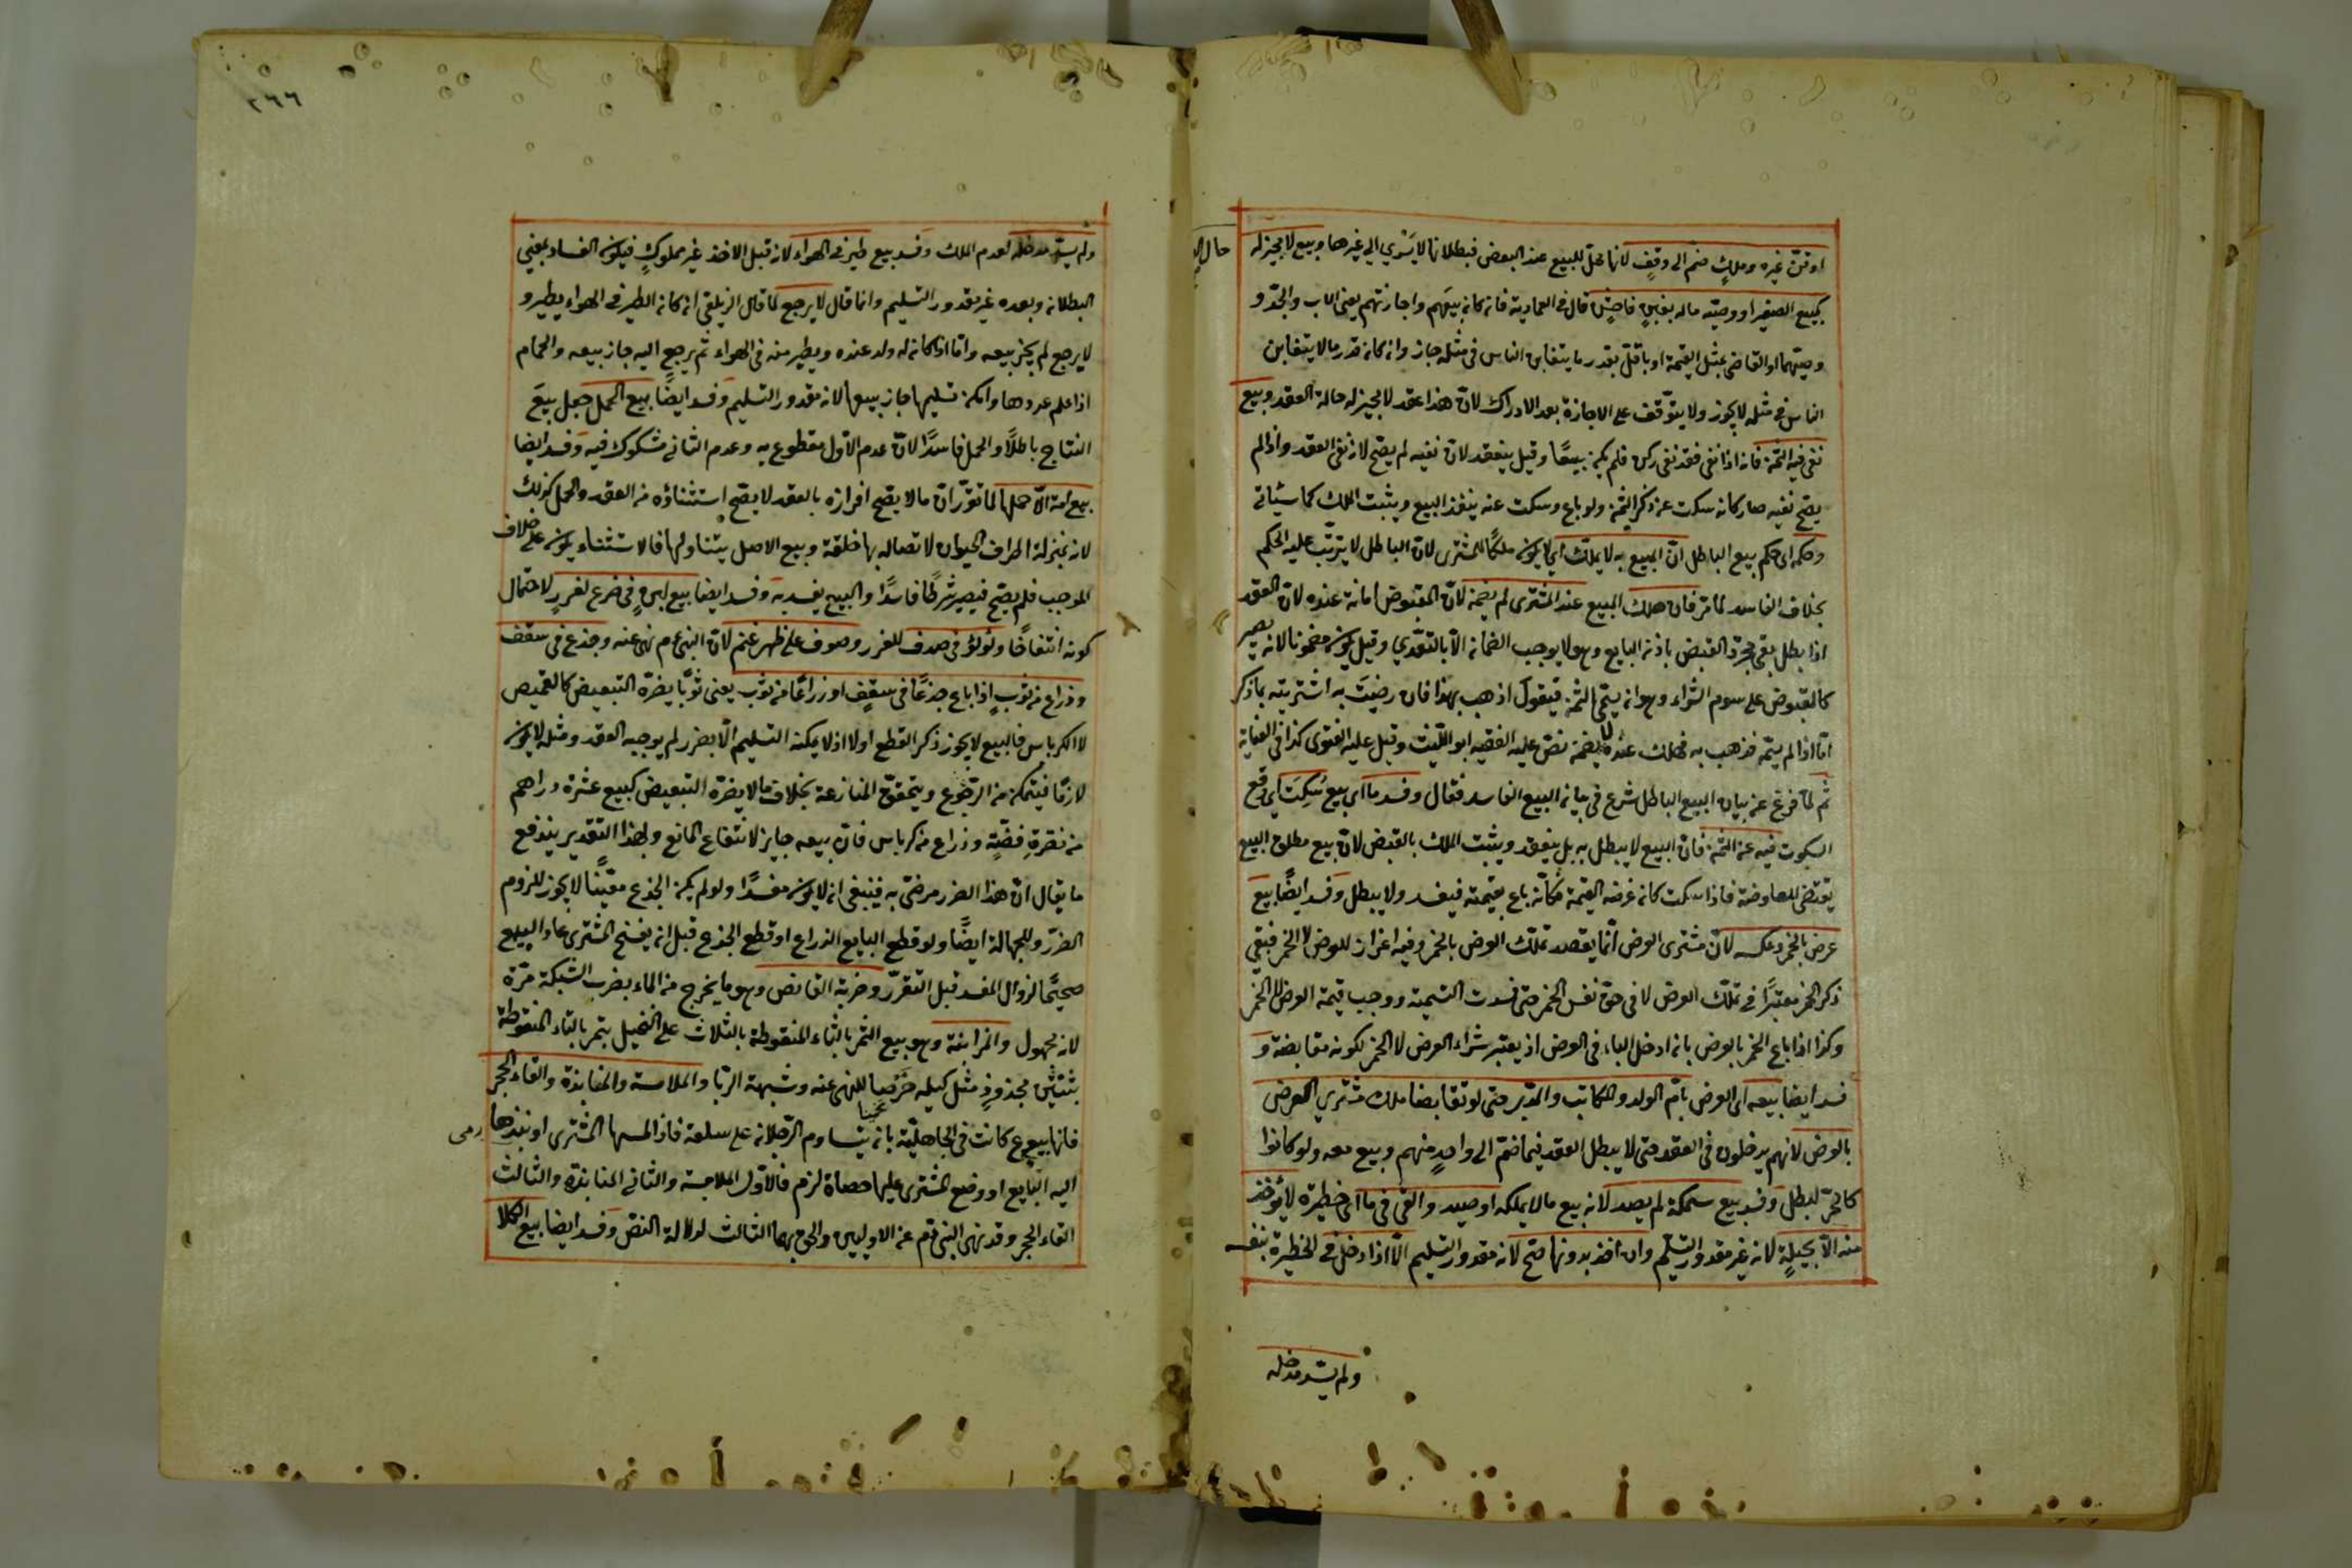 او قنّ غيره وملكٍ ضمّ الى وقفٍ لانها محل للبيع عند البعض فبطلانها لا يسري الى غيرها وبيع لا مجيز له
كبيع الصغير او وصيّه ماله بغبنٍ فاحشٍ قال في العمادية فانه كان بيعهم واجازتهم يعنى الاب والجدّ و
وصيّهما او القاضى بمثل القيمة او باقلّ بقدر ما يتغابن الناس فى مثله جاز وان كان قدر مالا يتغابن
الناس فى مثله لا يجوز ولا يتوقّف على الاجازة بعد الادراك لانّ هذا عقد لا مجيز له حالة العقد وبيع
نفى فيه الثمن فانه اذا نفى فقد نفى ركن فلم يكن بيعًا وقيل ينعقد لانّ نفيه لم يصحّ لانه نفى العقد واذا لم
يصحّ نفيه صار كانه سكت عن ذكر الثمن ولو باع وسكت عنه ينفذ البيع ويثبت الملك كما سيأتى
وحكمه اى حكم بيع الباطل انّ المبيع به لا يملك اى لا يكون ملكًا للمشترى لانّ الباطل لا يترتّب عليه الحكم
بخلاف الفاسد لما مرّ فان هلك المبيع عند المشترى لم يضمن لانّ المقبوض امانة عنده لانّ العقد
اذا بطل بقى مجرّد القبض باذن البايع وهو لا يوجب الضمان الّا بالتعدّي وقيل يكون مضمونا لانه يصير
كالمقبوض على سوم الشراء وهو ان يسمّى الثمن فيقول اذهب بهذا فان رضيتَ به اشتريته بما ذكر
امّا اذا لم يسمّه فذهب به فهلك عنده لا يضمن نصّ عليه الفقيه ابو الليث وقيل عليه الفتوى كذا فى العناية
ثم لمّا فرغ عن بيان البيع الباطل شرع فى بيان البيع الفاسد فقال وفسد ما اى بيع سُكِتَ اى وقع
السكوت فيه عن الثمن فانّ البيع لا يبطل به بل ينعقد ويثبت الملك بالقبض لانّ بيع مطلق البيع
يقتضى المعاوضة فاذا سكت كان غرضه القيمة فكانّه باع بقيمته فيفسد ولا يبطل وفسد ايضًا بيع
عرض بالخمر وعكسه لانّ مشترى العرض انّما يقصد تملّك العرض بالخمر وفيه اعزاز للعرض لا الخمر فبقى
ذكر الخمر معتبرًا فى تملّك العرض لا فى حقّ نفس الخمر حتى فسدت التسمية ووجب قيمة العرض لا الخمر
وكذا اذا باع الخمر بالعرض بان ادخل الباء فى العرض اذ يعتبر شراء العرض لا الخمر لكونه مقايضة و
فسد ايضا بيعه اى العرض بامّ الولد والمكاتب والمدبّر حتى لو تقابضا ملك مشتري العرض
بالعرض لانهم يدخلون فى العقد حتى لا يبطل العقد فيما ضمّ الى واحدٍ منهم وبيع معه ولو كانوا
كالحرّ لبطل وفسد بيع سمكة لم يصد لانه بيع مالا يملكه او صيد والقى فى ما اى حظيرة لا يؤخذ
منه الّا بحيلةٍ لانه غير مقدور التسليم وان اخذ بدونها صحّ لانه مقدور التسليم الّا اذا دخل فى الحظيرة بنفسه
ولم يسد مدخله
حال
٢٦٦
ولم يسد مدخله لعدم الملك وفسد بيع طير فى الهواء لانه قبل الاخذ غير مملوكٍ فيكون الفساد بمعنى
البطلان وبعده غير مقدور التسليم وانما قال لا يرجع لما قال الزيلعى ان كان الطير فى الهواء يطير و
لا يرجع لم يجز بيعه وامّا اذا كان له ولد عنده ويطير منه فى الهواء ثم يرجع اليه جاز بيعه والحمام
اذا علم عددها وامكن تسليمها جاز بيعها لانه مقدور التسليم وفسد ايضًا بيع الحمل جعل بيع
النتاج باطلًا والحمل فاسدًا لانّ عدم الاوّل مقطوع به وعدم الثانى مشكوك فيه وفسد ايضا
بيع امة الّا حملها لما تقرّر انّ مالا يصح افرازه بالعقد لا يصح استثناؤه من العقد والحمل كذلك
لانه بمنزلة اطراف الحيوان لاتصاله بها خلقة وبيع الاصل يتناولها فالاستثناء يكون على خلاف
الموجب فلم يصحّ فيصير شرطًا فاسدًا والبيع يفسد به وفسد ايضا بيع لبنٍ فى ضرع لغررٍ لاحتمال
كونه انتفاخًا ولؤلؤ فى صدف للغرر وصوف على ظهر غنم لانّ النبى عم نهى عنه وجذع فى سقف
وذراع من ثوبٍ اذا باع جذعًا فى سقفٍ او ذراعًا من ثوب يعنى ثوبًا يضرّه التبعيض كالقميص
لا الكرباس فالبيع لا يجوز ذكر القطع اولا اذ لا يمكنه التسليم الّا بضرر لم يوجبه العقد ومثله لا يكون
لازمًا فيتمكن من الرجوع ويتحقق المنازعة بخلاف ما لا يضرّه التبعيض كبيع عشرة دراهم
من نقرةِ فضّةٍ وذراع من كرباس فانّ بيعه جايز لانتفاع المانع وبهذا التقدير يندفع
ما يقال انّ هذا الضرر مرضىّ به فينبغى ان لا يكون مفسدًا ولو لم يكن الجذع معيّنًا لا يجوز للزوم
الضرّر وللجهالة ايضًا ولو قطع البايع الذراع او قطع الجذع قبل ان يفسخ المشترى عاد البيع
صحيحًا لزوال المفسد قبل التقرّر وضربة القانص وهو ما يخرج من الماء بضرب الشبكة مرّة
لانه مجهول والمزابنة وهو بيع الثمر بالثاء المنقوطة بالثلاث على النخيل بتمر بالتاء المنقوطة
بثنتين مجذوذٍ مثل كيله خرصا للنهى عنه وشبهة الربا والملامسة والمنابذة والقاء الحجر
فانها بيوع كانت فى الجاهليّة بان يتساوم الرّجلان على سلعة فاذا لمسها المشترى او نبذها
رمى
اليه البايع او وضع المشترى عليها حصاة لزم فالاوّل الملامسة والثانى المنابذة والثالث
القاء الحجر وقد نهى النبى عم عن الاوليين والحق بهما الثالث لدلالة النصّ وفسد ايضا بيع الكلا